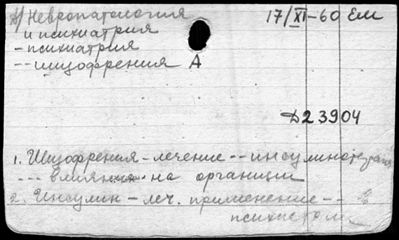 А) Невропатология 17/XI-60 Ем
и психиатрия
- психиатрия
-- шизофрения А
Д23904
1. Шизофрения - лечение -- инсулинотерапия
--- влияние на организм
2. Инсулин - леч. применение -- в
психиатрии